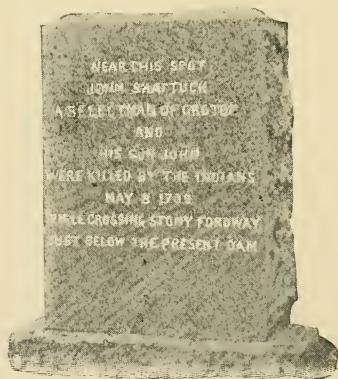 NEAR THIS SPOT
JOHN SHATTUCK
A SELECTMAN OF GROTON
AND
HIS SON JOHN
WERE KILLED BY THE INDIANS
MAY 8 1709
WHILE CROSSING STONY FORDWAY
JUST BELOW THE PRESENT DAM